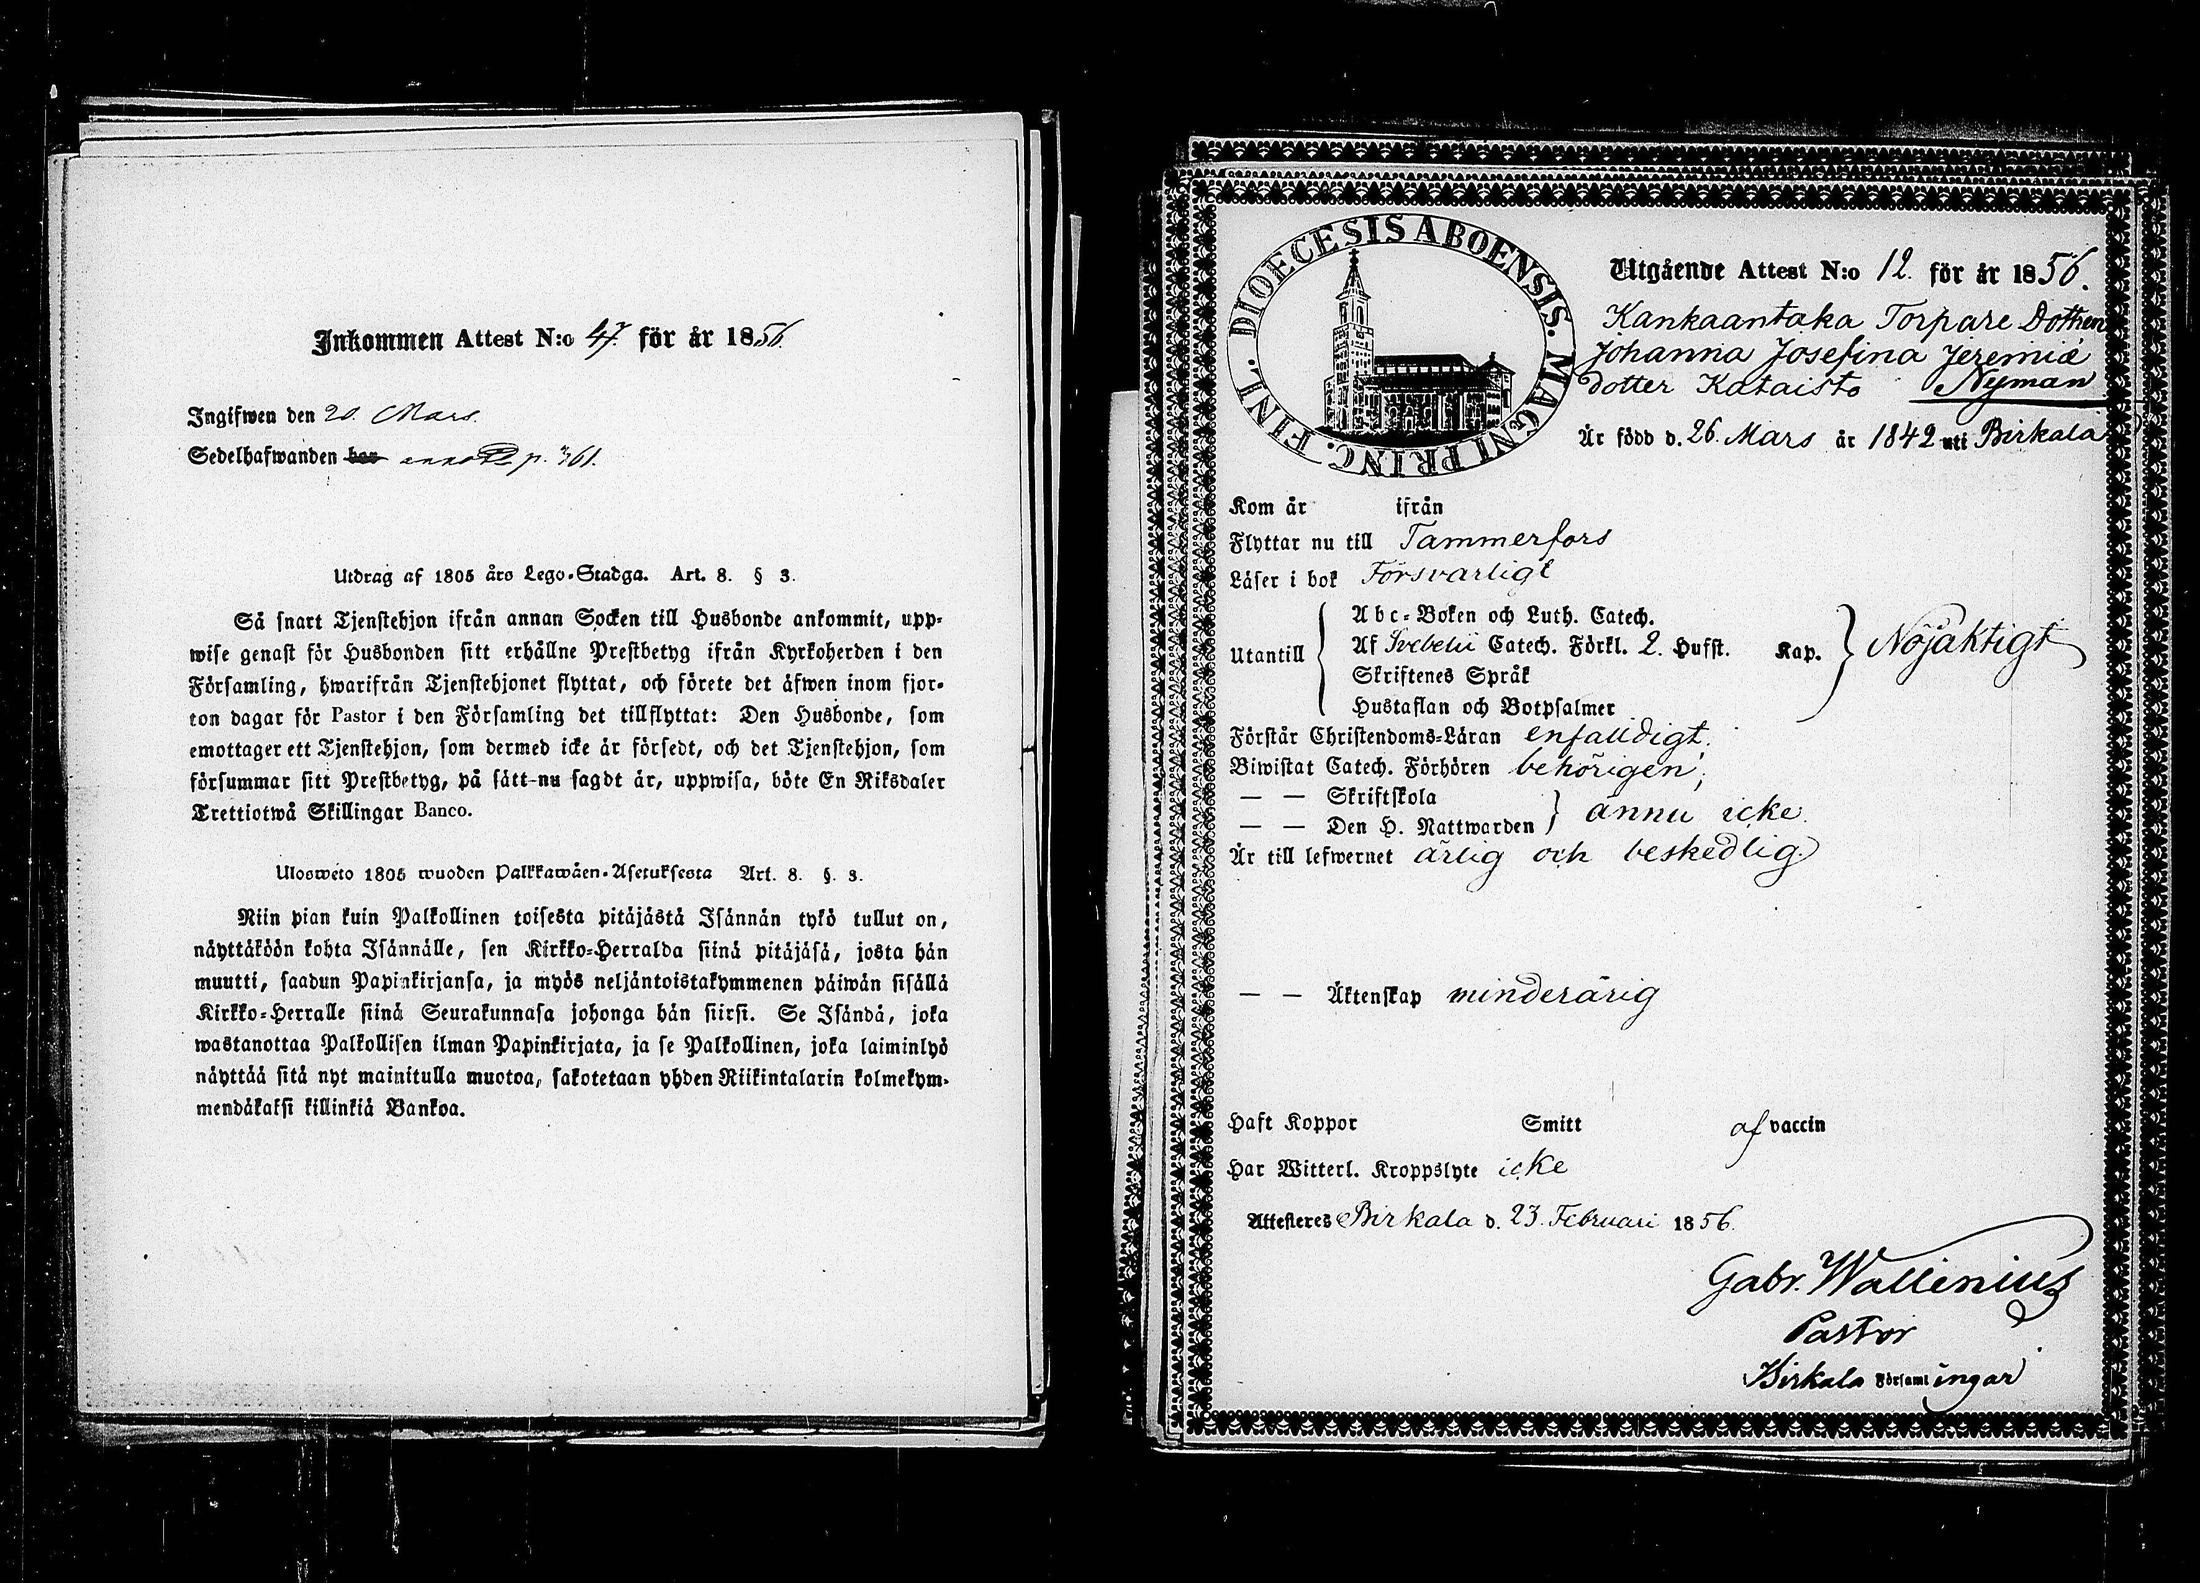 Inkommen Attest N:o 47. för år 1856.
Ingifwen den 20. Mars.
Sedelhafwanden bor p. 361.
Utdrag af 1805 års Lego-Stadga. Art. 8. § 3.
Så snart Tjenstehjon ifrån annan Socken till Husbonde ankommit, upp-
wise genast för Husbonden sitt erhållne Prestbetyg ifrån Kyrkoherden i den
Församling, hwarifrån Tjenstehjonet flyttat, och förete det äfwen inom fjor-
ton dagar för Pastor i den Församling det tillflyttat: Den Husbonde, som
emottager ett Tjenstehjon, som dermed icke är försedt, och det Tjenstehjon, som
försummar sitt Prestbetyg, på sätt nu sagdt är, uppwisa, böte En Riksdaler
Trettiotwå Skillingar Banco.
Ulosweto 1805 wuoden Palkkawäen-Asetuksesta Art. 8. §. 3.
Niin pian kuin Palkollinen toisesta pitäjästä Isännän tykö tullut on,
näyttäköön kohta Isännälle, sen Kirkko-Herralda siinä pitäjäsä, josta hän
muutti, saadun Papinkirjansa, ja myös neljäntoistakymmenen päiwän sisällä
Kirkko-Herralle siinä Seurakunnasa johonga hän siirsi. Se Isändä, joka
wastanottaa Palkollisen ilman Papinkirjata, ja se Palkollinen, joka laiminlyö
näyttää sitä nyt mainitulla muotoa, sakotetaan yhden Riikintalarin kolmekym-
mendäkaksi killinkiä Bankoa.
DIOECESIS ABOENSIS. MAGNI PRINC. FINL.
Utgående Attest N:o 12. för år 1856.
Kankaantaka Torpare Dottren
Johanna Josefina Jeremiæ
dotter Kataisto Nyman
Är född d. 26. Mars år 1842 uti Birkala
Kom år ifrån
Flyttar nu till Tammerfors
Läser i bok Försvarligt
Utantill
Abc-Boken och Luth. Catech.
Af Svebelii Catech. Förkl. 2. Hufst. Kap.
Skriftenes Språk
Hustaflan och Botpsalmer
Nöjaktigt
Förstår Christendoms-Läran enfaldigt.
Biwistat Catech. Förhören behörigen;
— — Skriftskola
— — Den H. Nattwarden
ännu icke.
Är till lefwernet ärlig och beskedlig.
— — Äktenskap minderårig
Haft Koppor Smitt af vaccin
Har Witterl. Kroppslyte icke
Attesteres Birkala d. 23. Februari 1856.
Gabr. Wallenius
Pastor
Birkala Församlingar